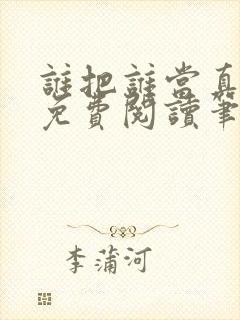 誰把誰當真
免費閱讀筆
李蒲河